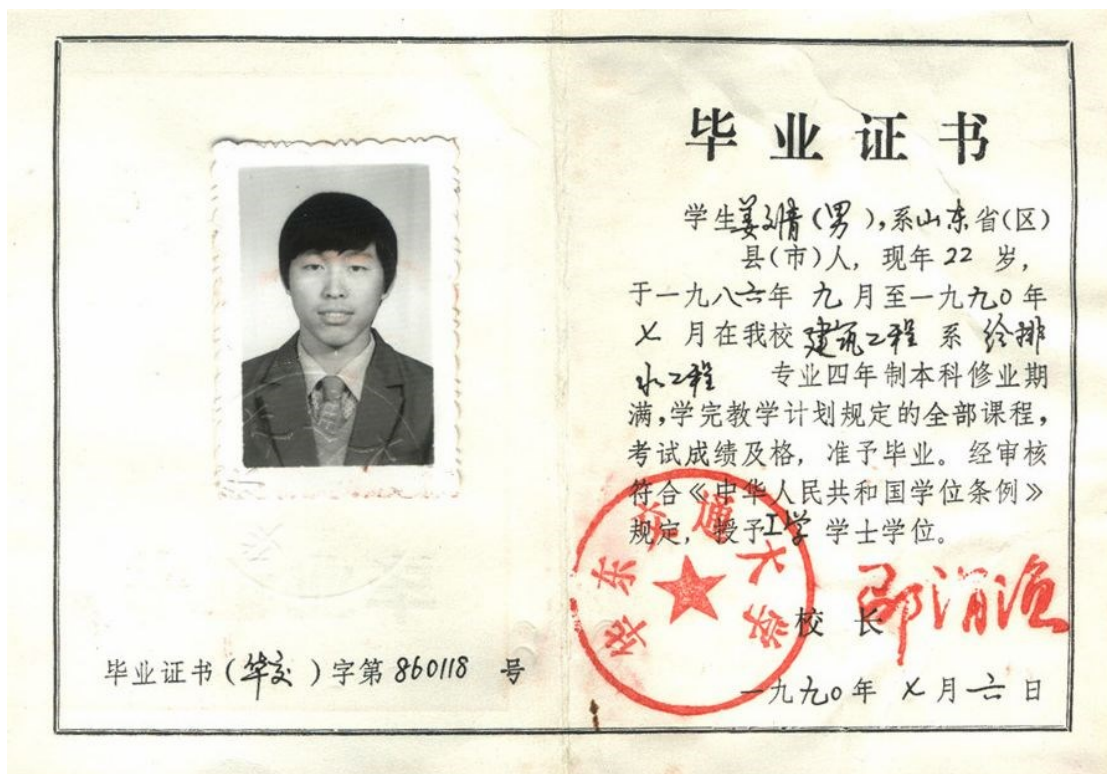 毕业证书
学生姜文情(男),系山东省(区)
县(市)人,现年22岁,
于一九八六年九月至一九九0年
七月在我校建筑工程系给排
水工程 专业四年制本科修业期
满,学完教学计划规定的全部课程,
考试成绩及格,准予毕业。经审核
符合《中华人民共和国学位条例》
规定,授予工学学士学位。
华东交通大学
校长
一九九0年七月六日
毕业证书(华交)字第860118号